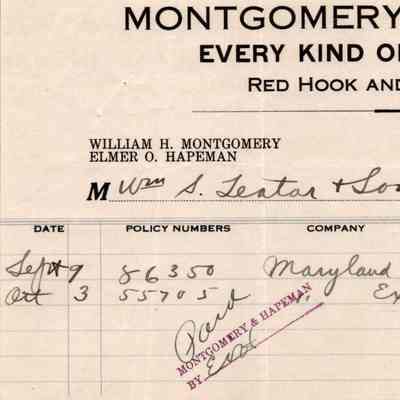 MONTGOMERY
EVERY KIND O
RED HOOK AND
WILLIAM H. MONTGOMERY
ELMER O. HAPEMAN
M Wm S. Teator & Son
DATE POLICY NUMBERS COMPANY
Sept 9 86350 Maryland
Oct 3 55705 " Ex
Paid
MONTGOMERY & HAPEMAN
BY